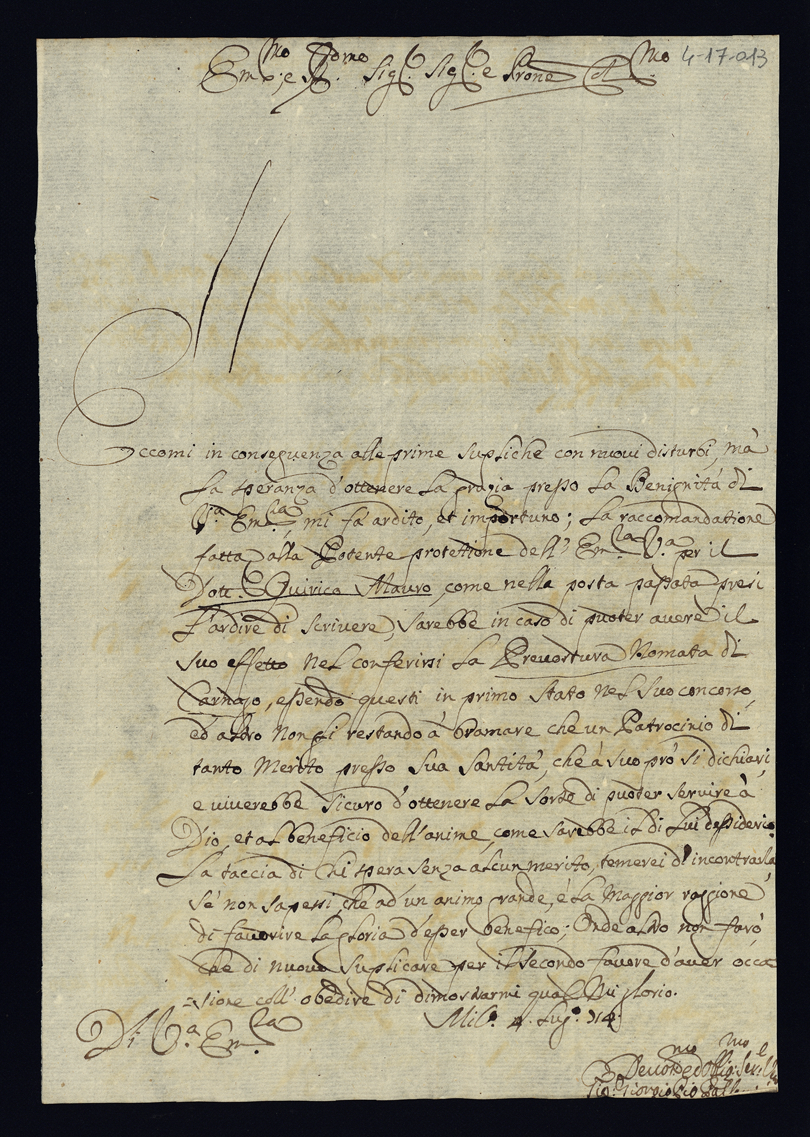 Em.mo, e R.mo Sig.r Sig.r e Prone 4-17-013
Eccomi in conseguenza alle prime supliche con nuovi disturbi, mà
La speranza d'ottenere La grazia presso La Benignità di
V.a Em.za, mi fà ardito, et importuno; La raccomandatione
fatta alla Potente protettione dell' Em.za V.a per il
Dott.e Quirico Mauro, come nella posta passata presi
L'ardire di scrivere, sarebbe in caso di puoter avere il
suo effetto nel conferirsi La Prevostura Nomata di
Carnago, essendo questi in primo stato nel suo concorso,
ed altro non gli restando à bramare che un Patrocinio di
tanto Merito presso Sua Santità, che à suo prò si dichiari,
e viverebbe sicuro d'ottenere La sorte di puoter servire à
Dio, et al beneficio dell'anime, come sarebbe il di Lui dessiderio.
La taccia di chi spera senza alcun merito, temerei d'incontrarla
se non sapessi, che ad un animo grande, è La Maggior raggione
di favorire La gloria d'esser benefico; Onde altro non farò
che di nuovo suplicare per il secondo favore d'aver occa
=sione coll' obedire di dimostrarmi qual Mi glorio.
Di V.a Em.za Mil.o 4. Lug.o 714
Devo.mo ed Oblig.mo Ser.e
Gio. Giorgio